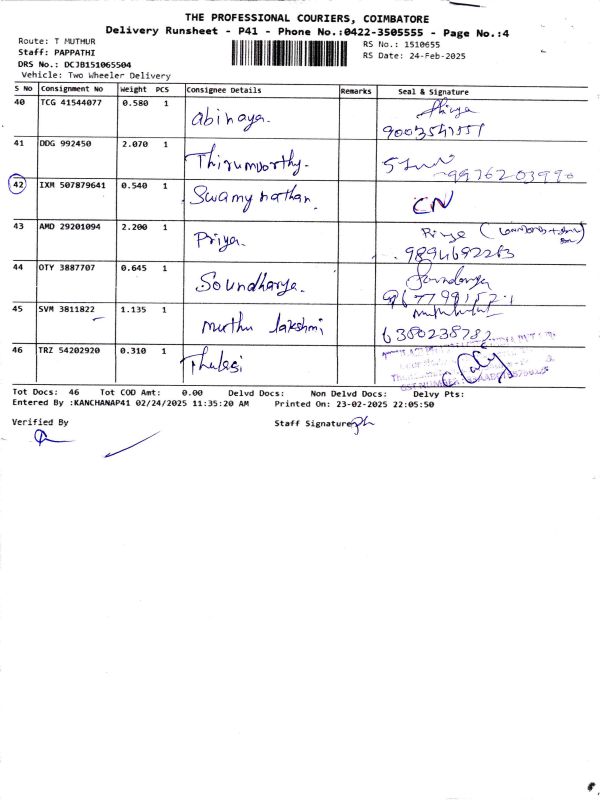 THE PROFESSIONAL COURIERS, COIMBATORE
Delivery Runsheet - P41 - Phone No.:0422-3505555 - Page No.:4
Route: T MUTHUR
Staff: PAPPATHI
DRS No.: DCJB151065504
Vehicle: Two Wheeler Delivery
RS No.: 1510655
RS Date: 24-Feb-2025
S No Consignment No Weight PCS Consignee Details Remarks Seal & Signature
40 TCG 41544077 0.580 1 abinaya.
41 DDG 992450 2.070 1 Thirumoorthy.
9976203990
42 IXM 507879641 0.540 1 Swamynathan. CN
43 AMD 29201094 2.200 1 Priya.
9894692263
44 OTY 3887707 0.645 1 Soundharya. Soundarya
45 SVM 3811822 1.135 1 muthu lakshmi
6380238782
46 TRZ 54202920 0.310 1 Thulasi
Tot Docs: 46 Tot COD Amt: 0.00 Delvd Docs: Non Delvd Docs: Delvy Pts:
Entered By :KANCHANAP41 02/24/2025 11:35:20 AM Printed On: 23-02-2025 22:05:50
Verified By Staff Signature